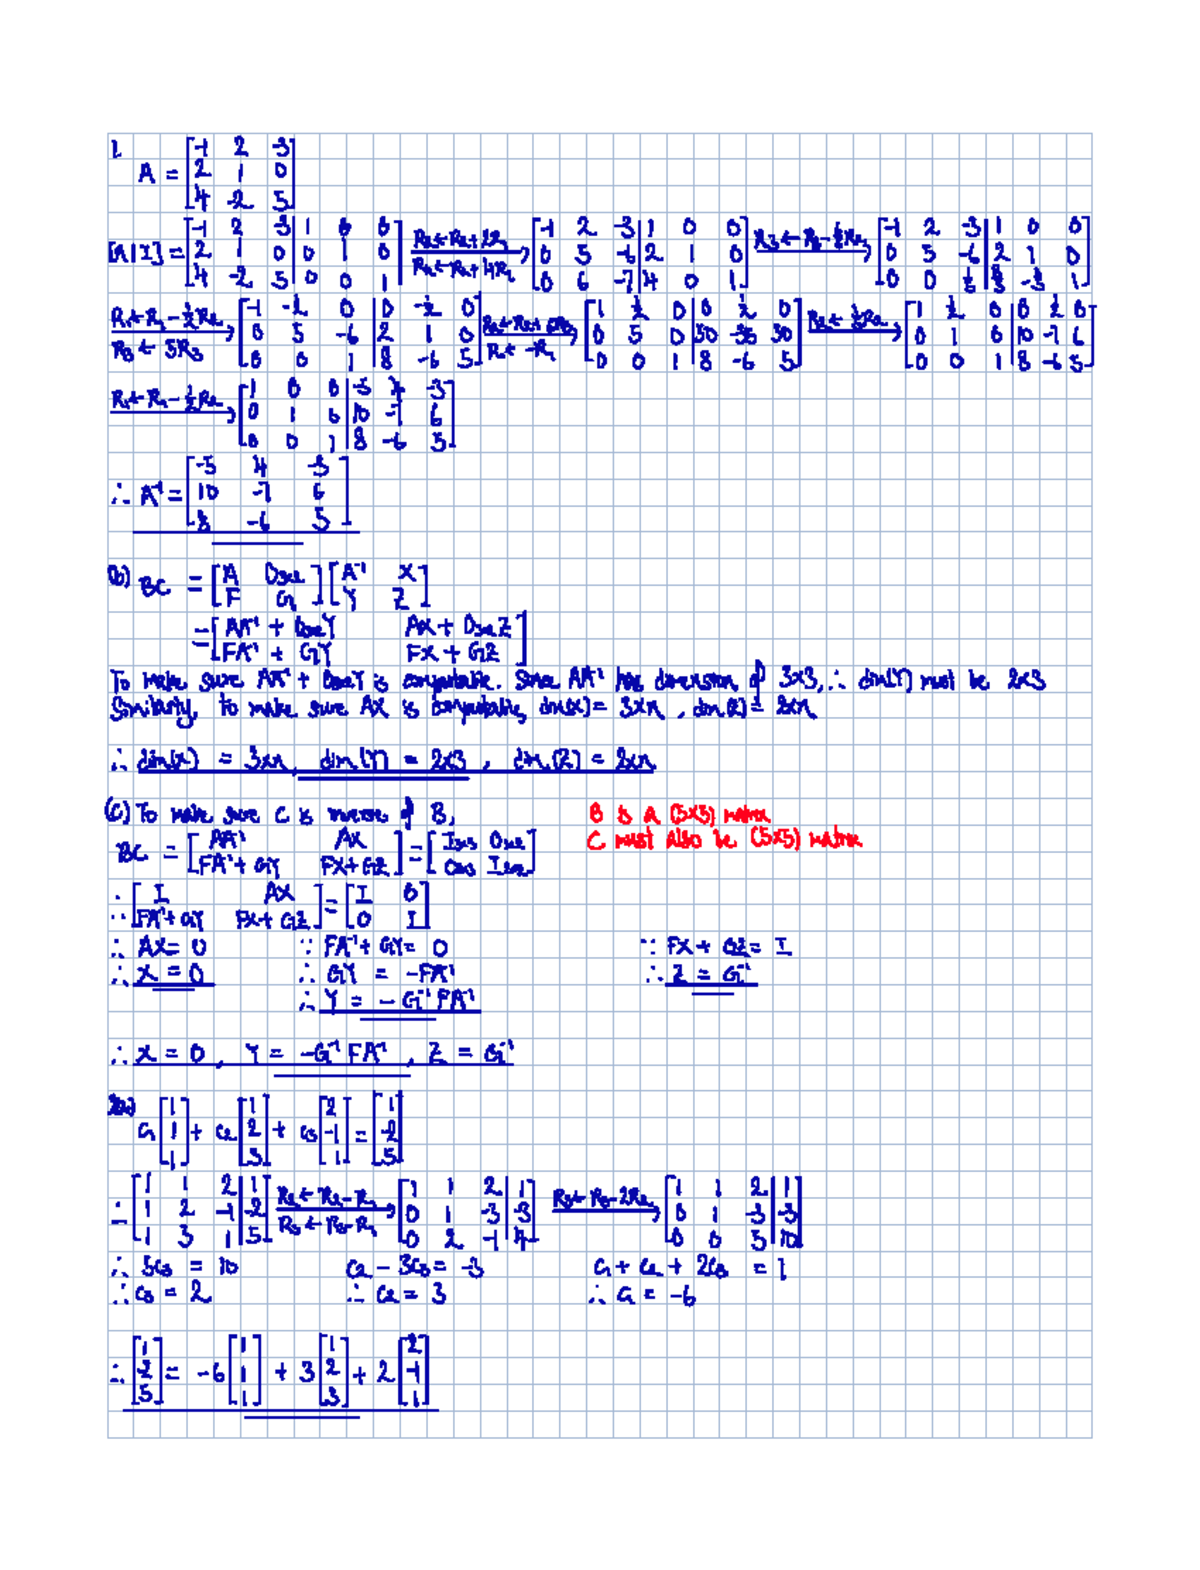 1.
A = [-1 2 -3; 2 1 0; 4 -2 5]
[A|I] = [-1 2 -3 | 1 0 0; 2 1 0 | 0 1 0; 4 -2 5 | 0 0 1] R2←R2+2R1, R3←R3+4R1 → [-1 2 -3 | 1 0 0; 0 5 -6 | 2 1 0; 0 6 -7 | 4 0 1] → [-1 2 -3 | 1 0 0; 0 5 -6 | 2 1 0; 0 0 1/5 | 8/5 -6/5 1]
R1←R1-1/2R2, R3←5R3 → [-1 -1/2 0 | 0 -1/2 0; 0 5 -6 | 2 1 0; 0 0 1 | 8 -6 5] R2←R2+6R3, R1←-R1 → [1 1/2 0 | 0 1/2 0; 0 5 0 | 50 -35 30; 0 0 1 | 8 -6 5] R2←1/5R2 → [1 1/2 0 | 0 1/2 0; 0 1 0 | 10 -7 6; 0 0 1 | 8 -6 5]
R1←R1-1/2R2 → [1 0 0 | -5 4 -3; 0 1 0 | 10 -7 6; 0 0 1 | 8 -6 5]
∴ A⁻¹ = [-5 4 -3; 10 -7 6; 8 -6 5]
(b) BC = [A O3x2; F G][A⁻¹ X; Y Z]
= [AA⁻¹ + O3x2Y AX + O3x2Z; FA⁻¹ + GY FX + GZ]
To make sure AA⁻¹ + O3x2Y is computable. Since AA⁻¹ has dimension of 3x3, ∴ dim(Y) must be 2x3
Similarly, to make sure AX is computable, dim(X) = 3xn, dim(Z) = 2xn
∴ dim(X) = 3xn, dim(Y) = 2x3, dim(Z) = 2xn
(c) To make sure C is inverse of B,
B is a (5x5) matrix
C must also be (5x5) matrix
BC = [AA⁻¹ AX; FA⁻¹+GY FX+GZ] = [I3x3 O3x2; O2x3 I2x2]
∴ [I AX; FA⁻¹+GY FX+GZ] = [I 0; 0 I]
∴ AX = 0 ∵ FA⁻¹ + GY = 0 ∵ FX + GZ = I
∴ X = 0 ∴ GY = -FA⁻¹ ∴ Z = G⁻¹
∴ Y = -G⁻¹FA⁻¹
∴ X = 0, Y = -G⁻¹FA⁻¹, Z = G⁻¹
2(a)
C1[1; 1; 1] + C2[1; 2; 3] + C3[2; -1; 1] = [1; -2; 5]
∴ [1 1 2 | 1; 1 2 -1 | -2; 1 3 1 | 5] R2←R2-R1, R3←R3-R1 → [1 1 2 | 1; 0 1 -3 | -3; 0 2 -1 | 4] R3←R3-2R2 → [1 1 2 | 1; 0 1 -3 | -3; 0 0 5 | 10]
∴ 5C3 = 10 C2 - 3C3 = -3 C1 + C2 + 2C3 = 1
∴ C3 = 2 ∴ C2 = 3 ∴ C1 = -6
∴ [1; -2; 5] = -6[1; 1; 1] + 3[1; 2; 3] + 2[2; -1; 1]